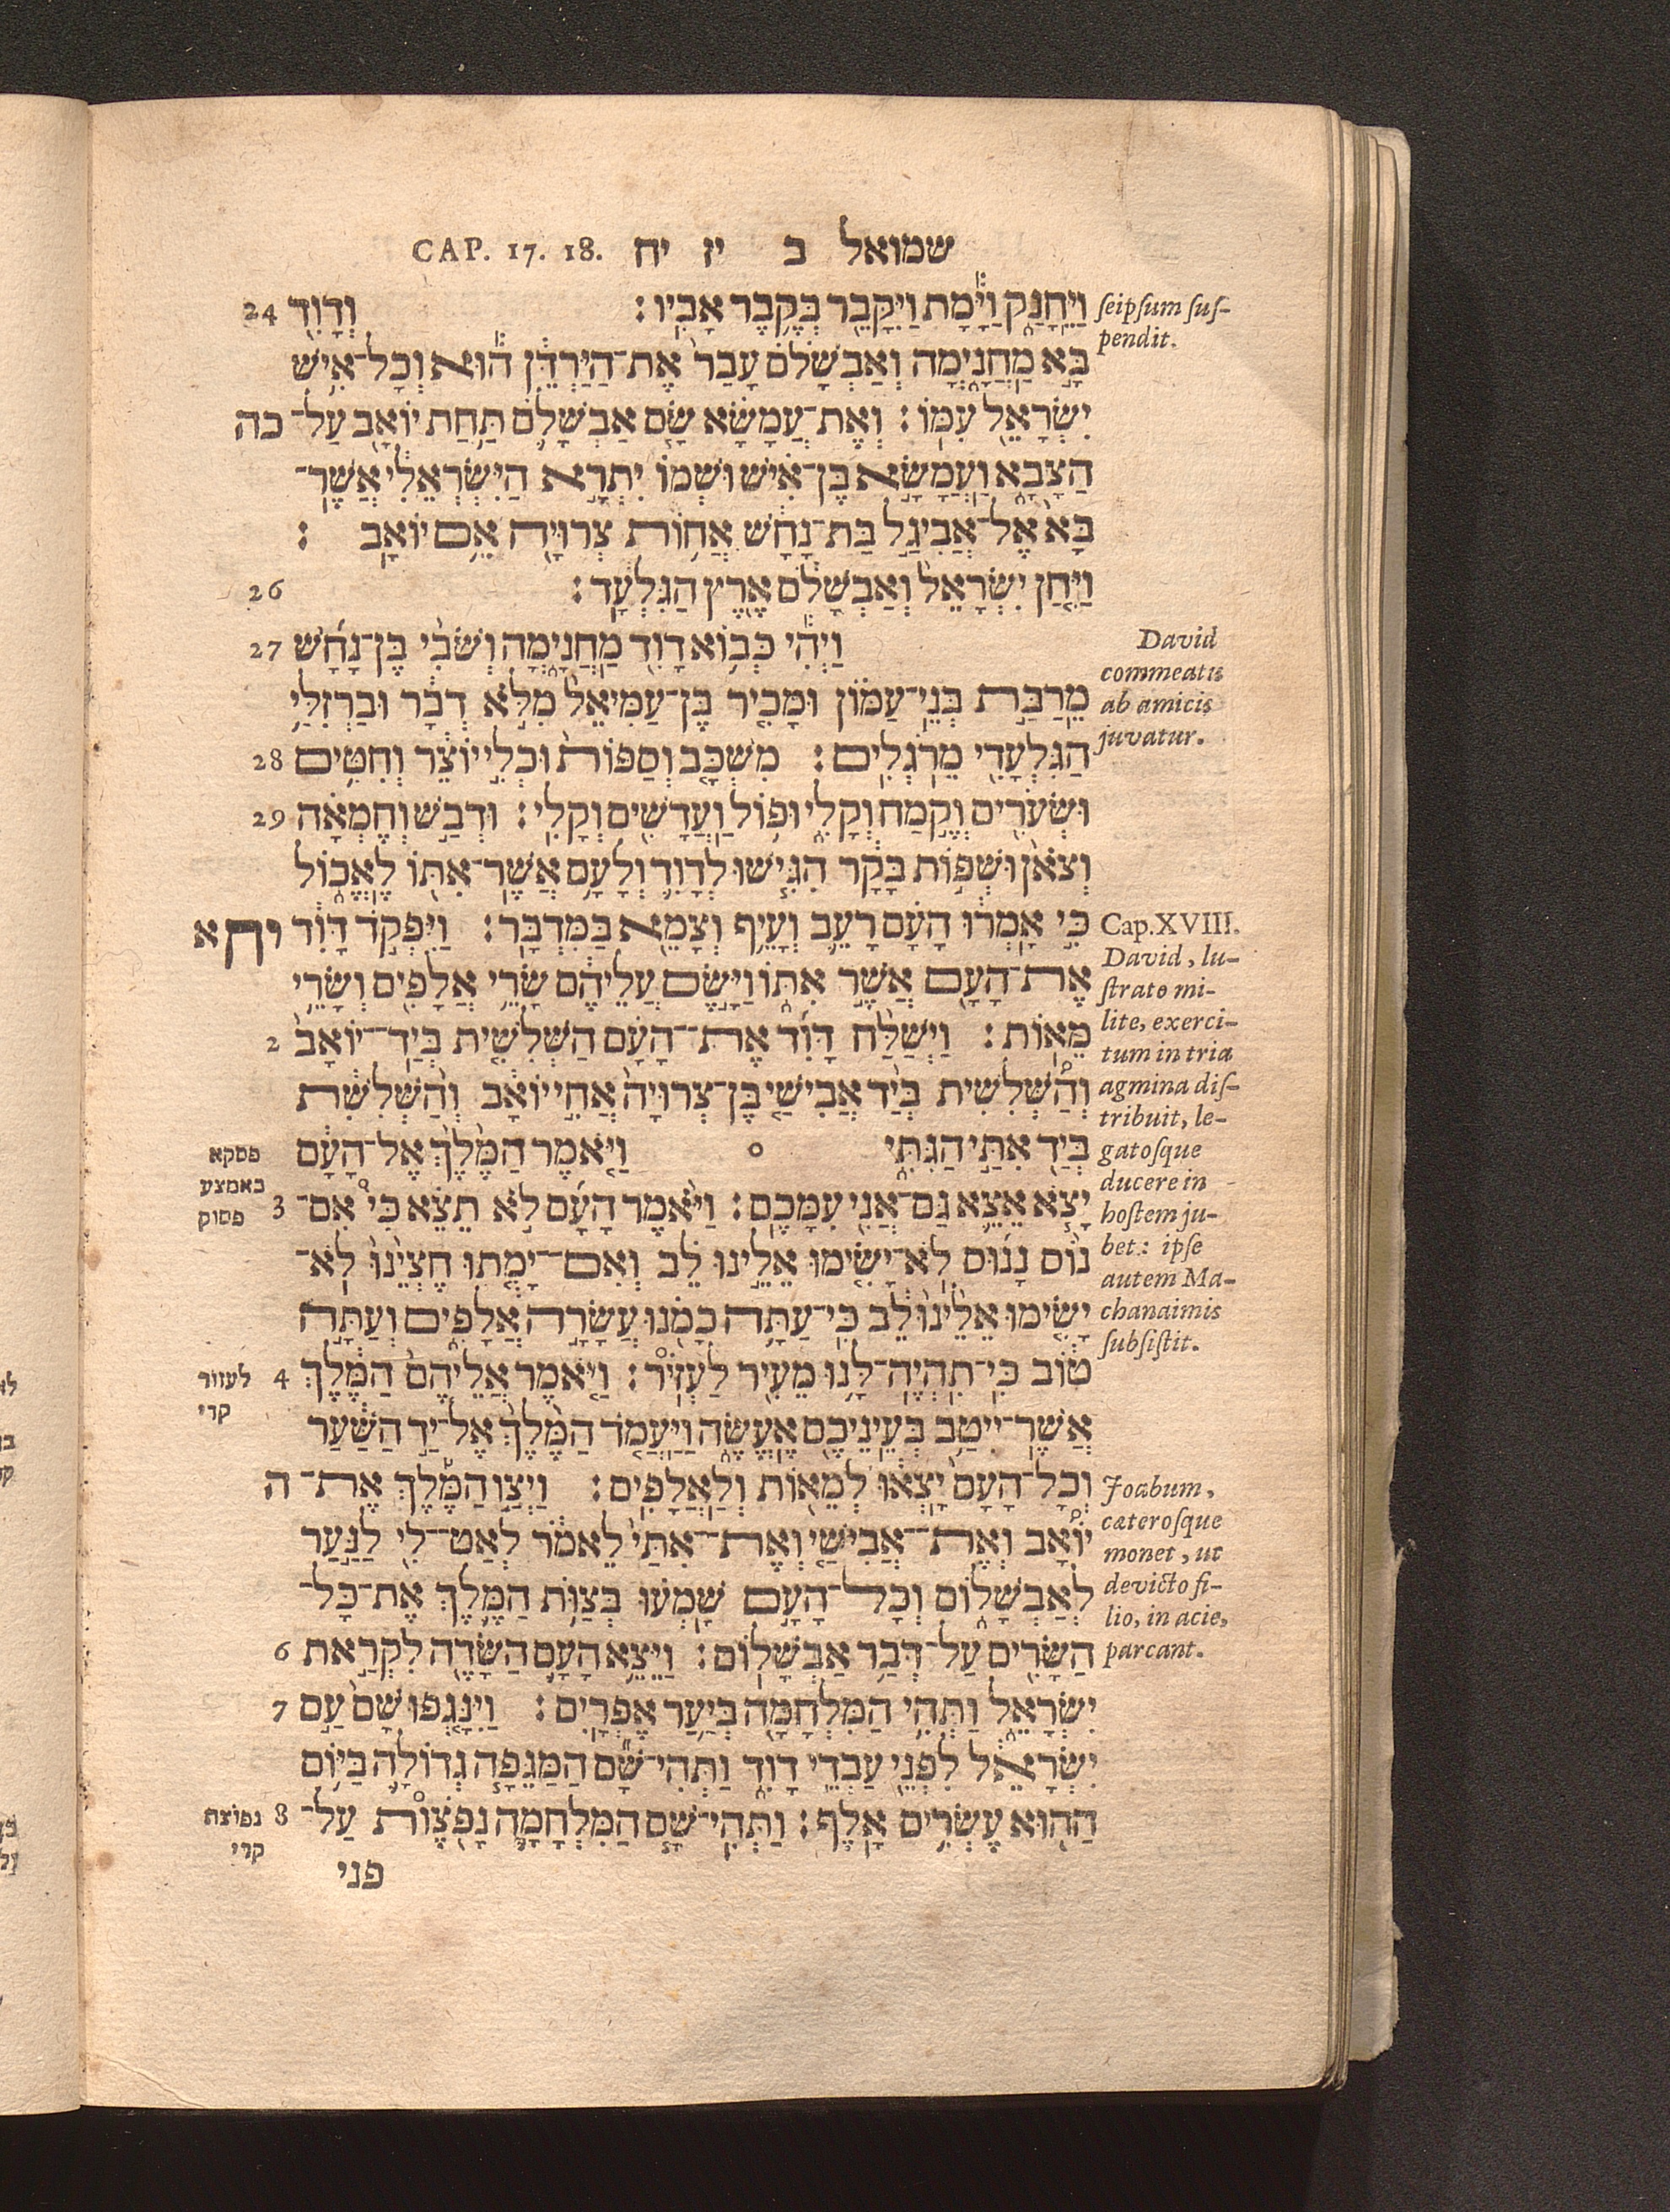 שמואל ב יז יח CAP. 17. 18.
וַיֵּחָנַק וַיָּמָת וַיִּקָּבֵר בְּקֶבֶר אָבִיו׃ וְדָוִד 24
בָּא מַחֲנָיְמָה וְאַבְשָׁלֹם עָבַר אֶת־הַיַּרְדֵּן הוּא וְכָל־אִישׁ
יִשְׂרָאֵל עִמּוֹ׃ וְאֶת־עֲמָשָׂא שָׂם אַבְשָׁלֹם תַּחַת יוֹאָב עַל־ כה
הַצָּבָא וַעֲמָשָׂא בֶן־אִישׁ וּשְׁמוֹ יִתְרָא הַיִּשְׂרְאֵלִי אֲשֶׁר־
בָּא אֶל־אֲבִיגַל בַּת־נָחָשׁ אֲחוֹת צְרוּיָה אֵם יוֹאָב׃
וַיִּחַן יִשְׂרָאֵל וְאַבְשָׁלֹם אֶרֶץ הַגִּלְעָד׃ 26
וַיְהִי כְּבוֹא דָוִד מַחֲנָיְמָה וְשֹׁבִי בֶן־נָחָשׁ 27
מֵרַבַּת בְּנֵי־עַמּוֹן וּמָכִיר בֶּן־עַמִּיאֵל מִלֹּא דְבָר וּבַרְזִלַּי
הַגִּלְעָדִי מֵרֹגְלִים׃ מִשְׁכָּב וְסַפּוֹת וּכְלִי יוֹצֵר וְחִטִּים 28
וּשְׂעֹרִים וְקֶמַח וְקָלִי וּפוֹל וַעֲדָשִׁים וְקָלִי׃ וּדְבַשׁ וְחֶמְאָה 29
וְצֹאן וּשְׁפוֹת בָּקָר הִגִּישׁוּ לְדָוִד וְלָעָם אֲשֶׁר־אִתּוֹ לֶאֱכוֹל
כִּי אָמְרוּ הָעָם רָעֵב וְעָיֵף וְצָמֵא בַּמִּדְבָּר׃ וַיִּפְקֹד דָּוִד יח א
אֶת־הָעָם אֲשֶׁר אִתּוֹ וַיָּשֶׂם עֲלֵיהֶם שָׂרֵי אֲלָפִים וְשָׂרֵי
מֵאוֹת׃ וַיְשַׁלַּח דָּוִד אֶת־הָעָם הַשְּׁלִשִׁית בְּיַד־יוֹאָב 2
וְהַשְּׁלִשִׁית בְּיַד אֲבִישַׁי בֶּן־צְרוּיָה אֲחִי יוֹאָב וְהַשְּׁלִשִׁת
בְּיַד אִתַּי הַגִּתִּי ○ וַיֹּאמֶר הַמֶּלֶךְ אֶל־הָעָם
יָצֹא אֵצֵא גַּם־אֲנִי עִמָּכֶם׃ וַיֹּאמֶר הָעָם לֹא תֵצֵא כִּי אִם־ 3
נוֹס נָנוּס לֹא־יָשִׂימוּ אֵלֵינוּ לֵב וְאִם־יָמֻתוּ חֶצְיֵנוּ לֹא־
יָשִׂימוּ אֵלֵינוּ לֵב כִּי־עַתָּה כָמֹנוּ עֲשָׂרָה אֲלָפִים וְעַתָּה
טוֹב כִּי־תִהְיֶה־לָּנוּ מֵעִיר לַעְזִיר׃ וַיֹּאמֶר אֲלֵיהֶם הַמֶּלֶךְ 4
אֲשֶׁר־יִיטַב בְּעֵינֵיכֶם אֶעֱשֶׂה וַיַּעֲמֹד הַמֶּלֶךְ אֶל־יַד הַשַּׁעַר
וְכָל־הָעָם יָצְאוּ לְמֵאוֹת וְלַאֲלָפִים׃ וַיְצַו הַמֶּלֶךְ אֶת־ ה
יוֹאָב וְאֶת־אֲבִישַׁי וְאֶת־אִתַּי לֵאמֹר לְאַט־לִי לַנַּעַר
לְאַבְשָׁלוֹם וְכָל־הָעָם שָׁמְעוּ בְּצַוֺּת הַמֶּלֶךְ אֶת־כָּל־
הַשָּׂרִים עַל־דְּבַר אַבְשָׁלוֹם׃ וַיֵּצֵא הָעָם הַשָּׂדֶה לִקְרַאת 6
יִשְׂרָאֵל וַתְּהִי הַמִּלְחָמָה בְּיַעַר אֶפְרָיִם׃ וַיִּנָּגְפוּ שָׁם עַם 7
יִשְׂרָאֵל לִפְנֵי עַבְדֵי דָוִד וַתְּהִי־שָׁם הַמַּגֵּפָה גְדוֹלָה בַּיּוֹם
הַהוּא עֶשְׂרִים אָלֶף׃ וַתְּהִי־שָׁם הַמִּלְחָמָה נָפֹצֶוֹת עַל־ 8
פני
seipsum sus-
pendit.
David
commeatu
ab amicis
juvatur.
Cap.XVIII.
David, lu-
strato mi-
lite, exerci-
tum in tria
agmina dis-
tribuit, le-
gatosque
ducere in
hostem ju-
bet: ipse
autem Ma-
chanaimis
subsistit.
Joabum,
cæterosque
monet, ut
devicto fi-
lio, in acie,
parcant.
פסקא
באמצע
פסוק
לעזור
קרי
נפוצת
קרי